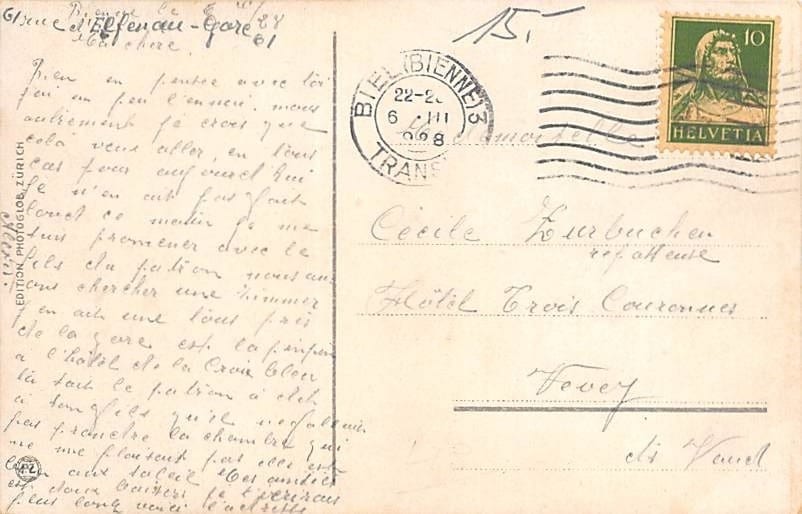 Bienne le 6 III 28
Elfenau-Gare 61
Ma chère
Bien en pensée avec toi
j'ai un peu l'ennui, mais
autrement je crois que
celà veux aller, en tous
cas pour aujourd'hui
je n'en ait pas fait
ce matin je me
suis promener avec le
fils du patron nous
chercher une Zimmer
j'en ait une tous près
de la gare est la
à l'hôtel de la Croix bleu
là sait le patron à
à son fils qu'il
pas prendre la chambre qui
ne me plaisait pas elle est
aux soleil
est doux baisers je t'écrirais
plus long voici l'adresse
EDITION PHOTOGLOB, ZÜRICH
PZ
15.-
BIEL (BIENNE) 3
22-2
6 III
TRANS
10
HELVETIA
Mademoiselle
Cécile Zurbuchen
repasseuse
Hôtel Trois Couronnes
Vevey
ct. Vaud